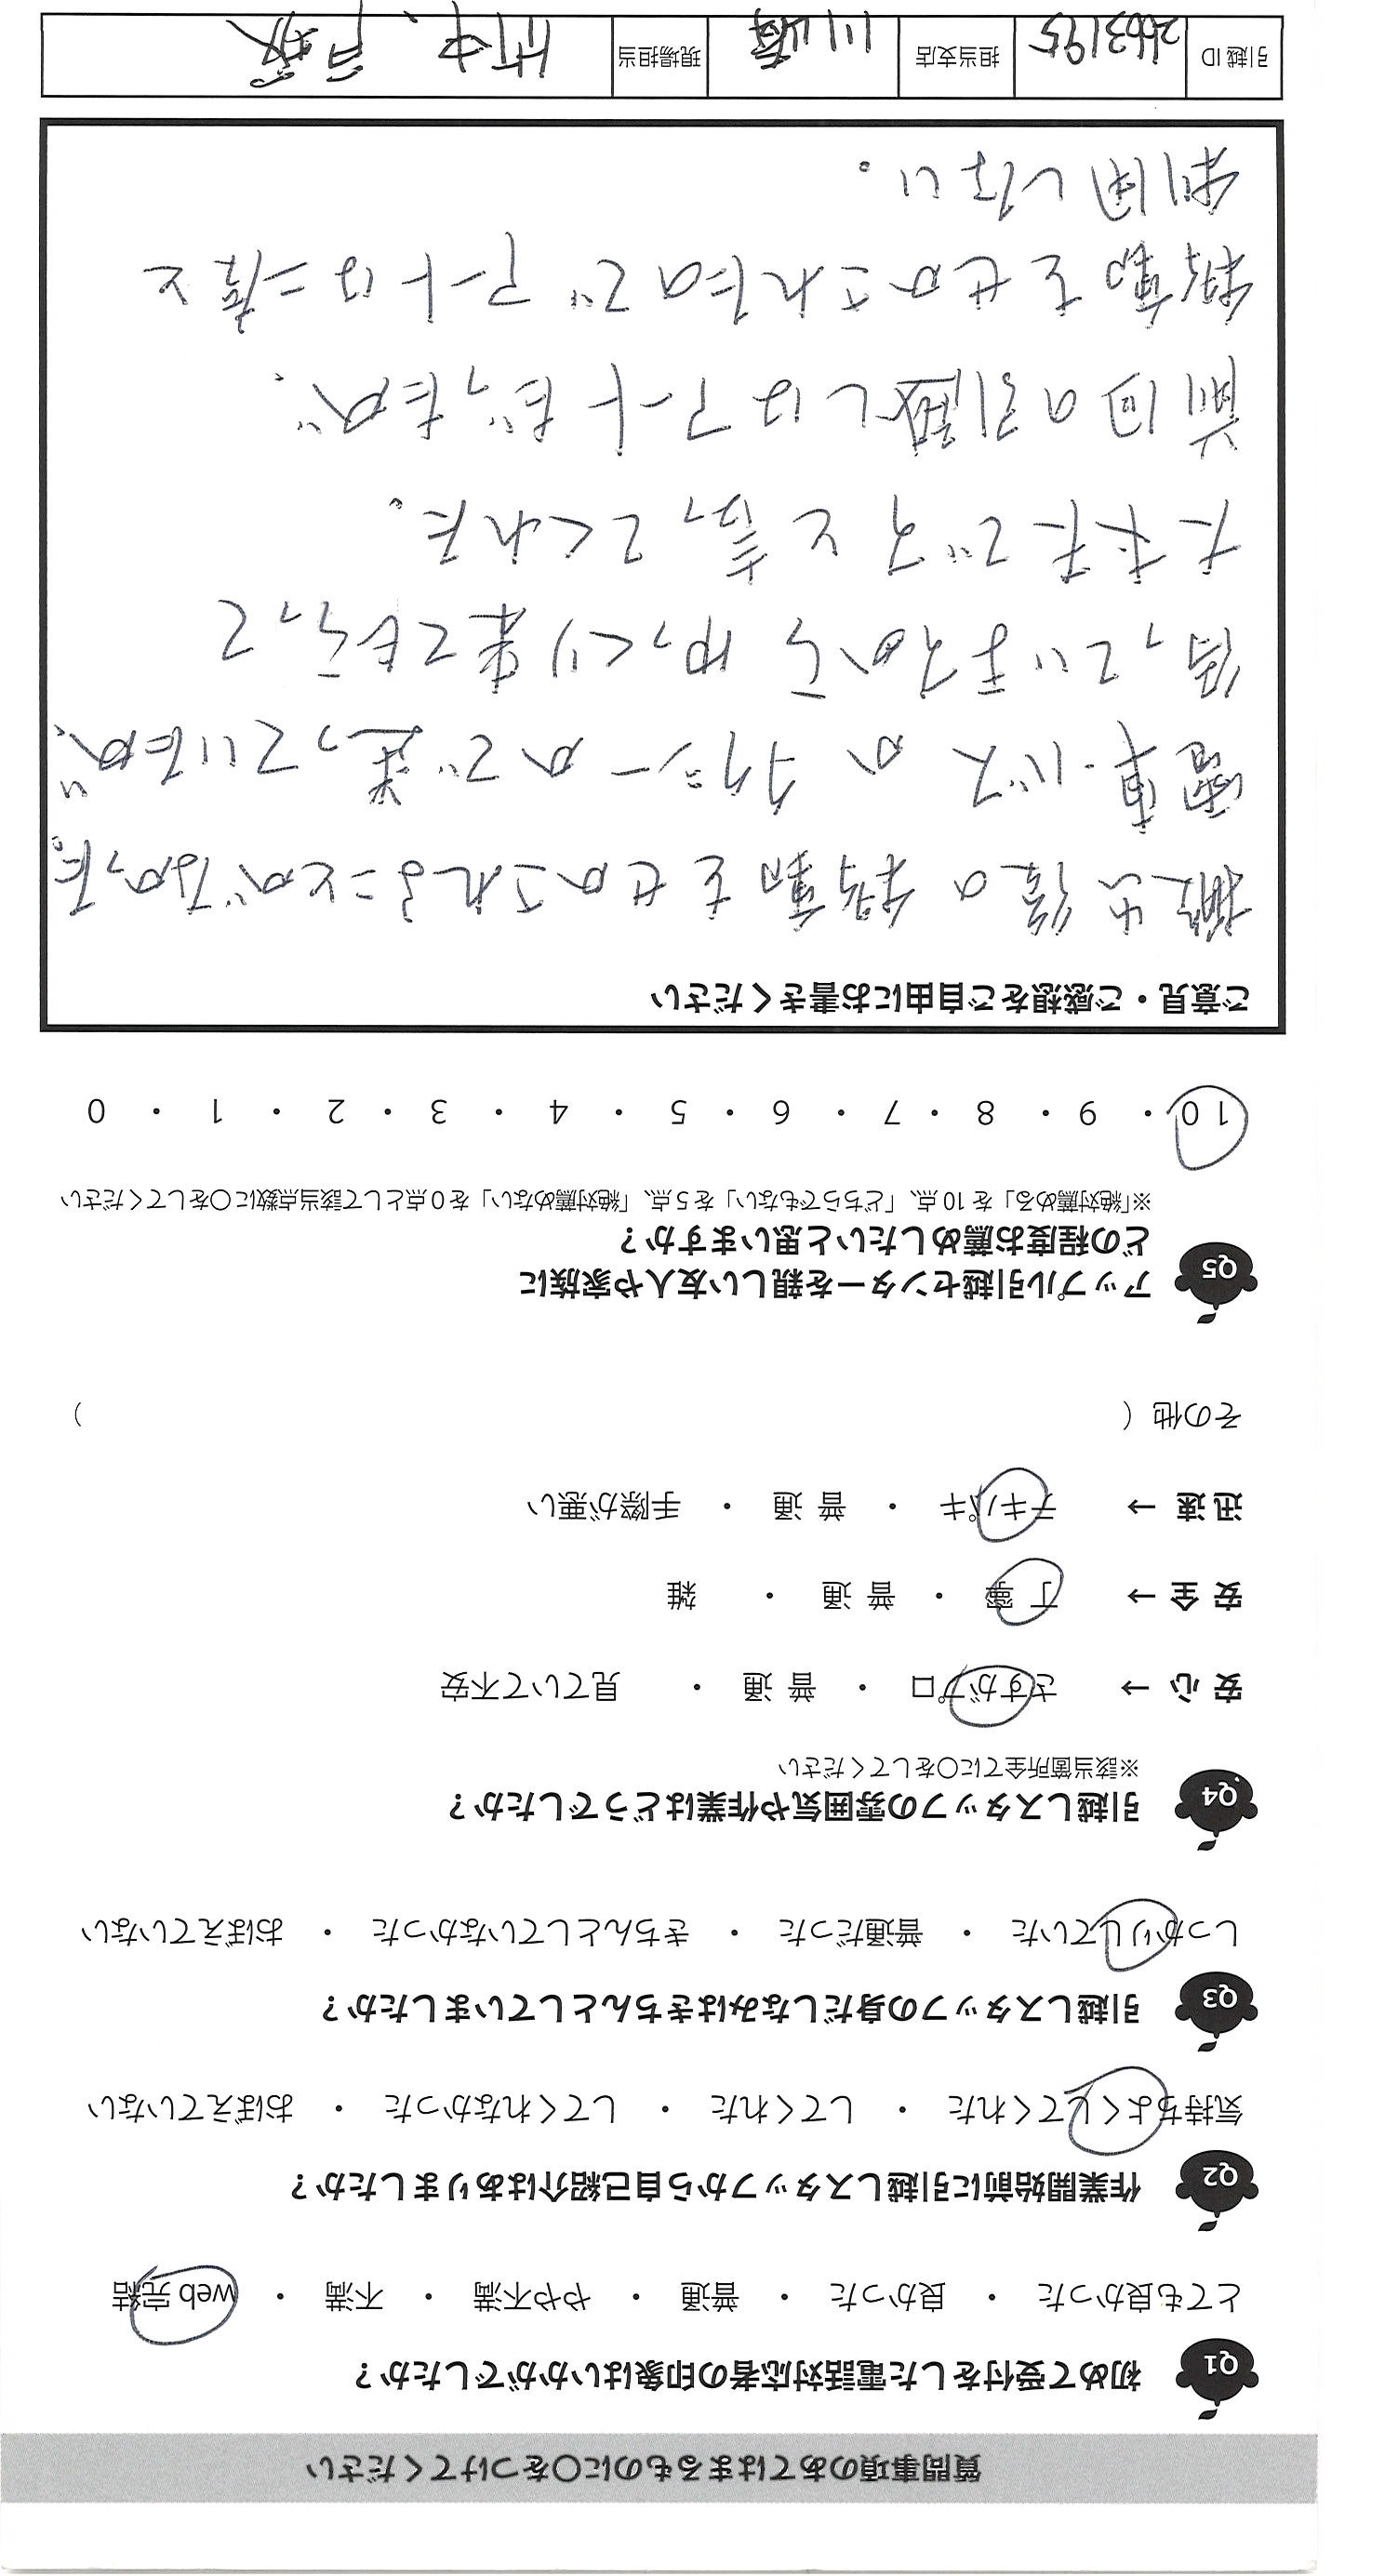 質問事項のあてはまるものに〇をつけてください
Q1 初めて受付をした電話対応者の印象はいかがでしたか？
とても良かった ・ 良かった ・ 普通 ・ やや不満 ・ 不満 ・ web 完結
Q2 作業開始前に引越しスタッフから自己紹介はありましたか？
気持ちよくしてくれた ・ してくれた ・ してくれなかった ・ おぼえていない
Q3 引越しスタッフの身だしなみはきちんとしていましたか？
しっかりしていた ・ 普通だった ・ きちんとしていなかった ・ おぼえていない
Q4 引越しスタッフの雰囲気や作業はどうでしたか？
※該当箇所全てに〇をしてください
安 心 → さすがプロ ・ 普 通 ・ 見ていて不安
安 全 → 丁 寧 ・ 普 通 ・ 雑
迅 速 → テキパキ ・ 普 通 ・ 手際が悪い
その他（ ）
Q5 アップル引越センターを親しい友人や家族に
どの程度お薦めしたいと思いますか？
※「絶対薦める」を 10 点、「どちらでもない」を 5 点、「絶対薦めない」を 0 点として該当点数に〇をしてください
10 ・ 9 ・ 8 ・ 7 ・ 6 ・ 5 ・ 4 ・ 3 ・ 2 ・ 1 ・ 0
ご意見・ご感想をご自由にお書きください
搬出後の移動をせかされることがなかった。
電車・バスか タクシーかで迷っていたが、
待っていますから ゆっくり来てもらって
大丈夫ですよと言ってくれた。
前回の引越しはアートだったが、
移動をせかされたので アートは二度と
利用しない。
引越 ID 2663195 担当支店 川崎 現場担当 竹中、戸叡